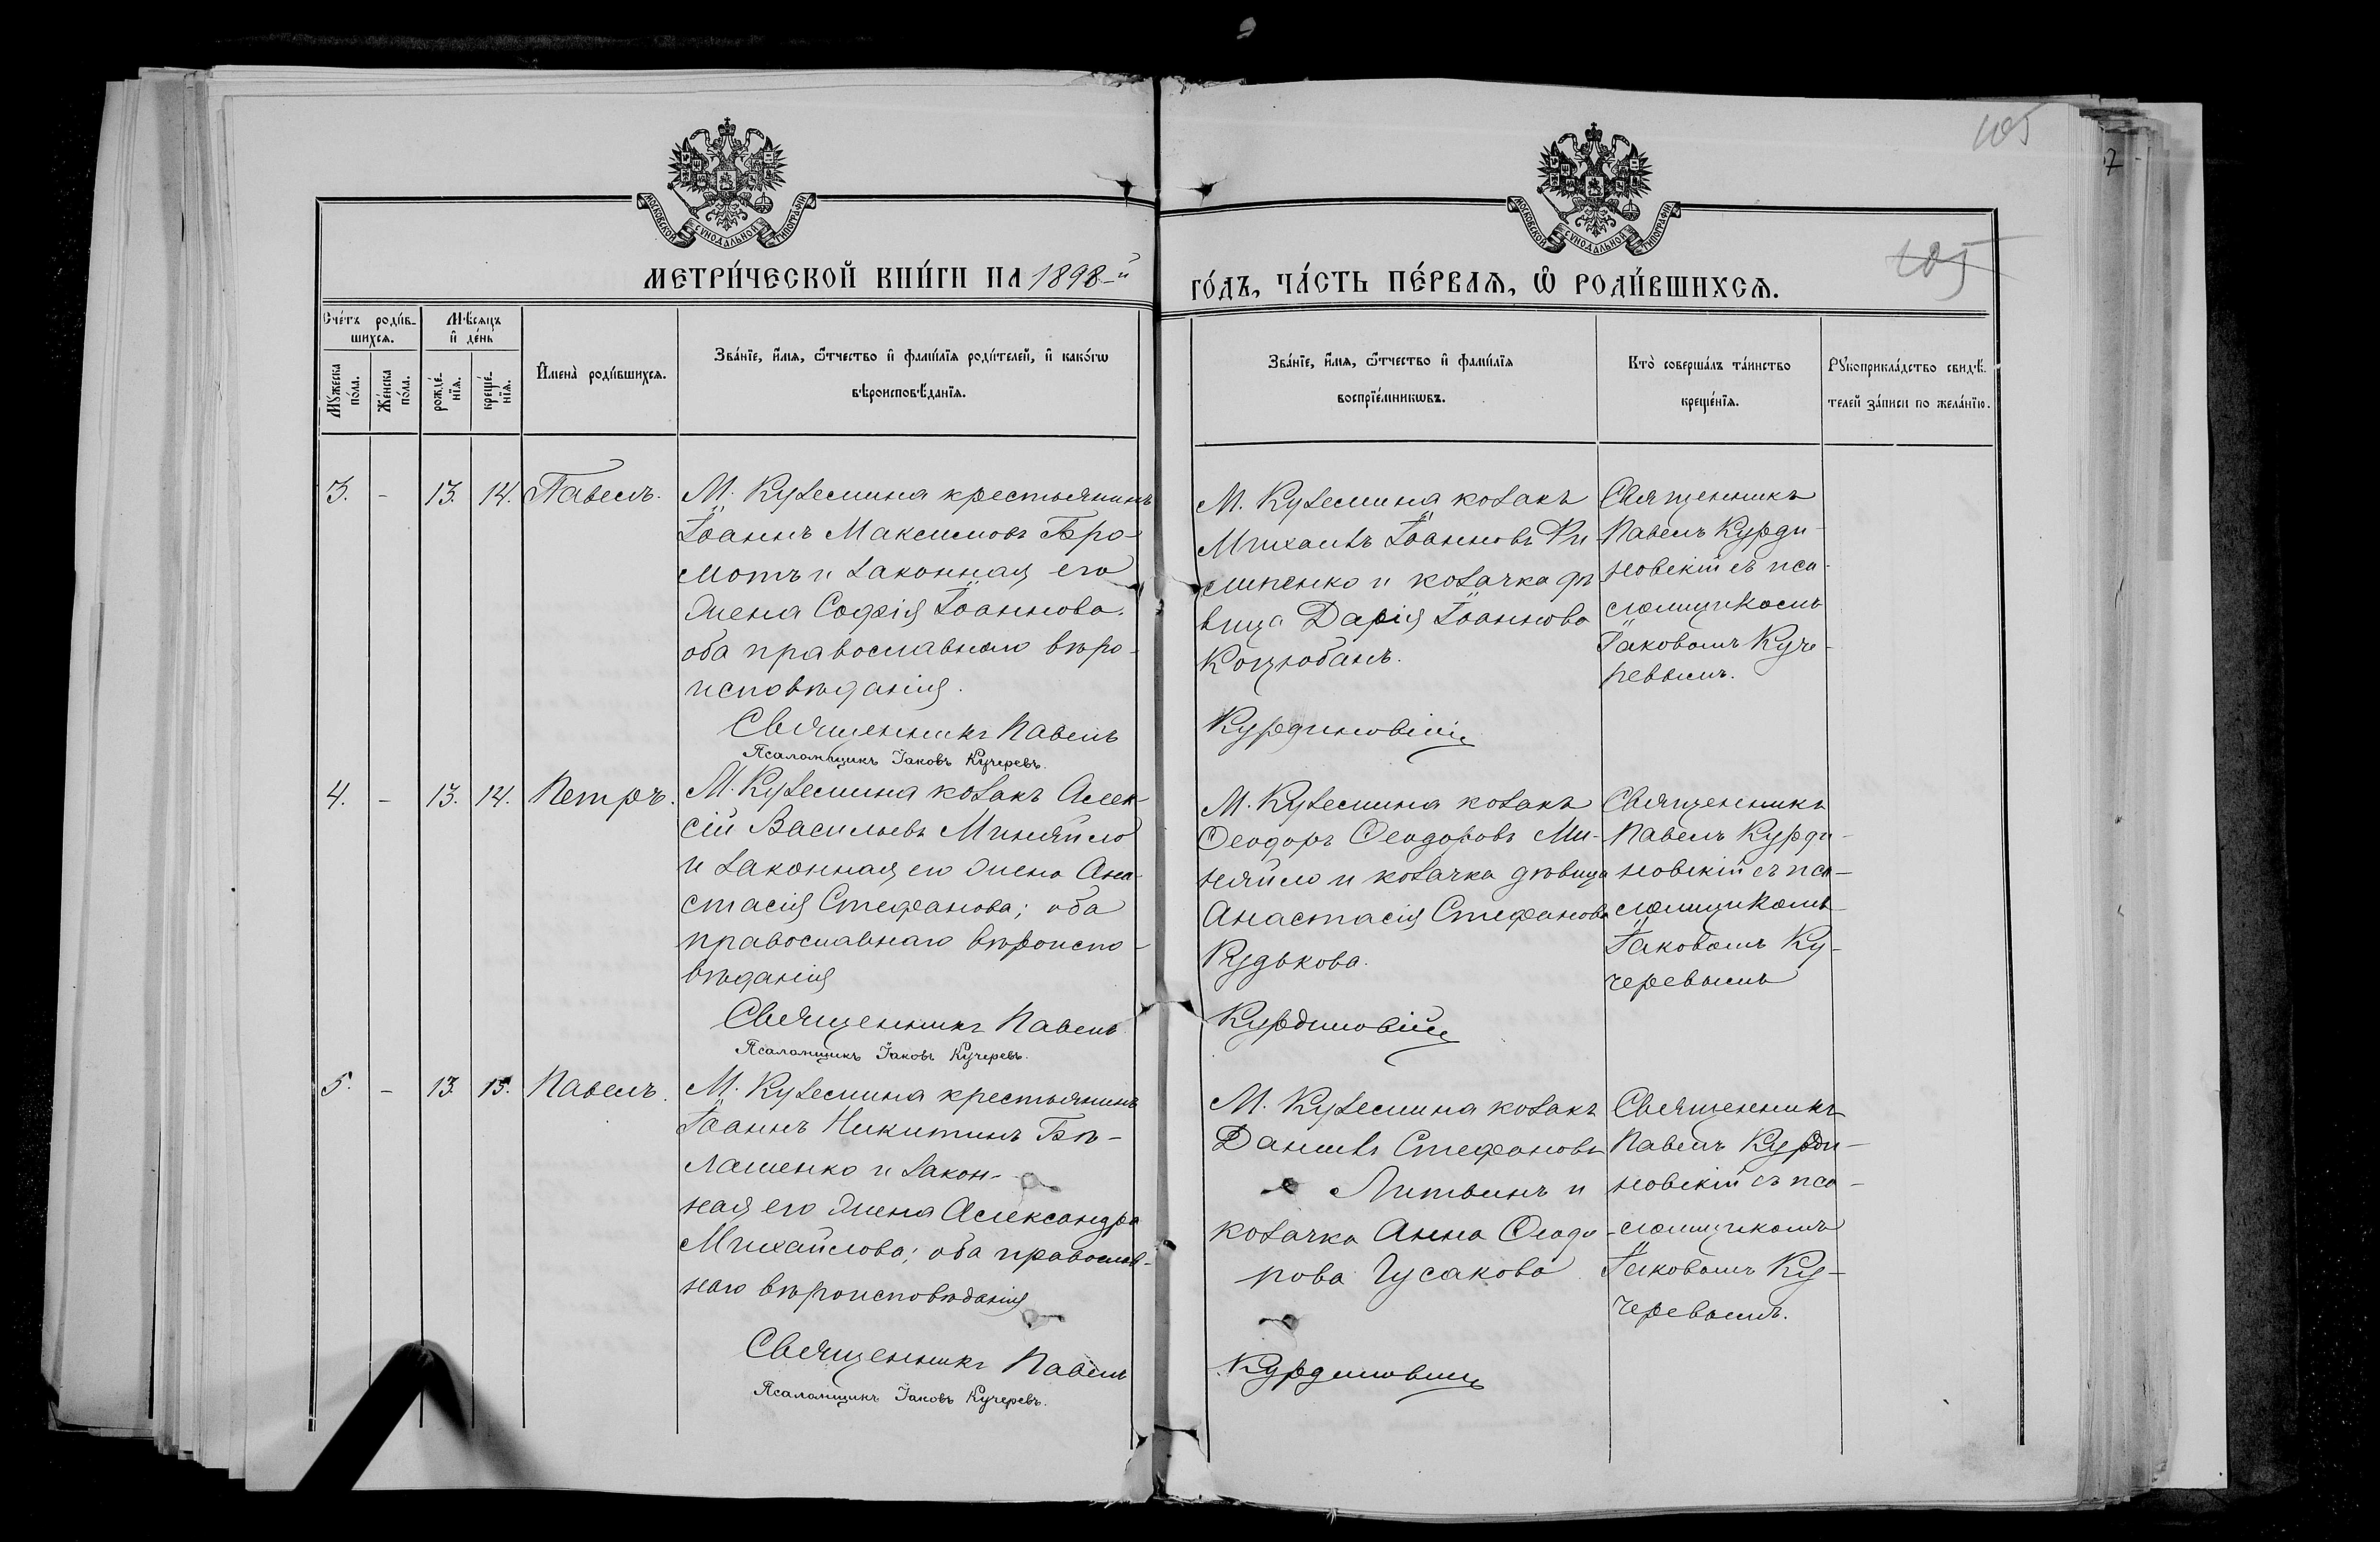 105
7
МОСКОВСКОЙ СУНОДАЛЬНОЙ ТИПОГРАФІИ
МОСКОВСКОЙ СУНОДАЛЬНОЙ ТИПОГРАФІИ
МЕТРИ́ЧЕСКОЙ КНИ́ГИ НА 1898-й
ГО́ДЪ, ЧА́СТЬ ПЕ́РВАѦ, Ѡ҆ РОДИ́ВШИХСѦ.
105
Счє́тъ роди́в-
шихсѧ.
Мꙋ́жєска по́ла.
Жє́нска по́ла.
Мѣ́сѧцъ
и҆ дє́нь
рождє́-нїѧ.
крєщє́-нїѧ.
И҆мєна̀ роди́вшихсѧ.
Зва́нїє, и҆́мѧ, ѻ҆́тчєство и҆ фами́лїѧ роди́тєлєй, и҆ како́гѡ
вѣроисповѣ́данїѧ.
Зва́нїє, и҆́мѧ, ѻ҆́тчєство и҆ фами́лїѧ
воспрїє́мникѡвъ.
Кто̀ совєрша́лъ та́инство
крєщє́нїѧ.
Рꙋкоприкла́дство свидѣ́-
тєлєй за́писи по жєла́нїю.
3. - 13. 14. Павелъ.
М. Куземина крестьянинъ
Іоаннъ Максимовъ Бро-
мотъ и законная его
жена Софія Іоаннова.
оба православнаго вѣро-
исповѣданія.
Священникъ Павелъ
Псаломщикъ Іаковъ Кучеревъ.
М. Куземина козакъ
Михаилъ Іоанновъ Фи-
липенко и козачка дѣ-
вица Дарія Іоаннова
Коцюбанъ.
Курдиновскій
Священникъ
Павелъ Курди-
новскій съ пса-
ломщикомъ
Іаковомъ Куче-
ревымъ.
4. - 13. 14. Петръ.
М. Куземина козакъ Алек-
сій Васильевъ Миняйло
и законная его жена Ана-
стасія Стефанова; оба
православнаго вѣроиспо-
вѣданія
Священникъ Павелъ
Псаломщикъ Іаковъ Кучеревъ.
М. Куземина козакъ
Ѳеодоръ Ѳеодоровъ Ми-
няйло и козачка дѣвица
Анастасія Стефанова
Кудькова.
Курдиновскій
Священникъ
Павелъ Курди-
новскій съ пса-
ломщикомъ
Іаковомъ Ку-
черевымъ
5. - 13. 15. Павелъ.
М. Куземина крестьянинъ
Іоаннъ Никитинъ Бѣ-
лашенко и закон-
ная его жена Александра
Михайлова; оба православ-
наго вѣроисповѣданія
Священникъ Павелъ
Псаломщикъ Іаковъ Кучеревъ.
М. Куземина козакъ
Даніилъ Стефановъ
Литвинъ и
козачка Анна Ѳеодо-
рова Гусакова
Курдиновскій
Священникъ
Павелъ Курди-
новскій съ пса-
ломщикомъ
Іаковомъ Ку-
черевымъ.